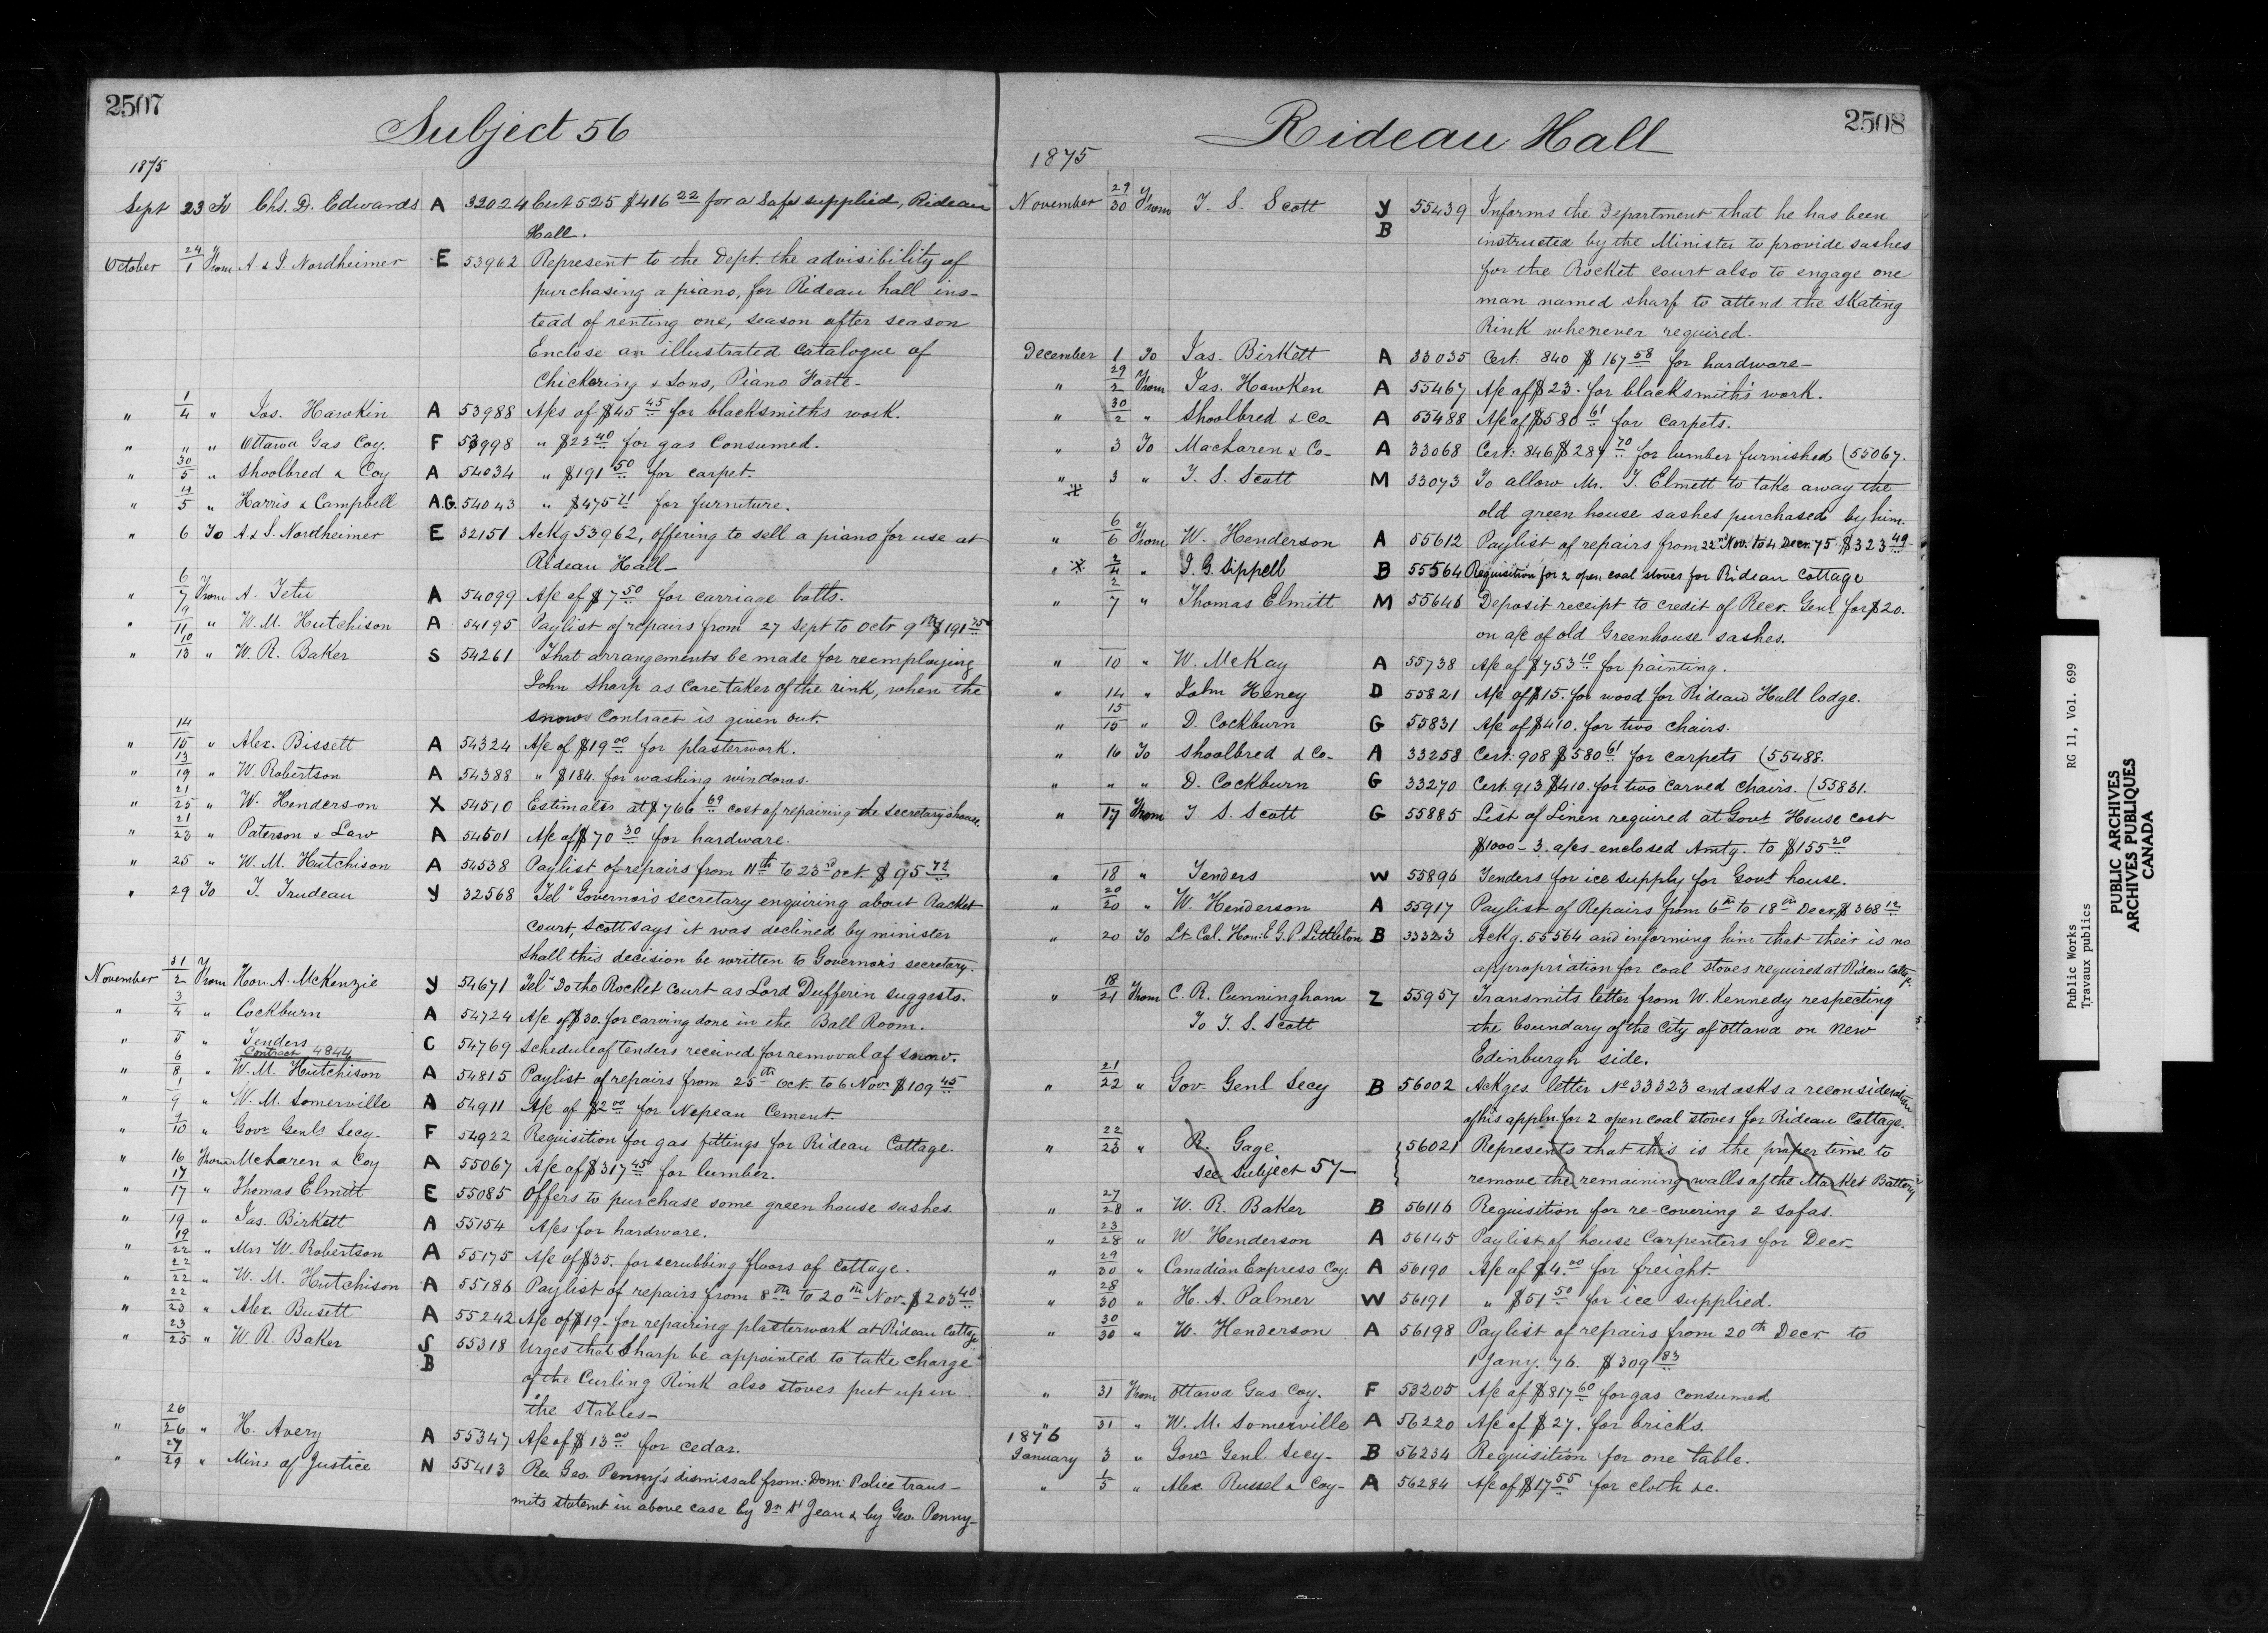 2507
Subject 56
1875
Sept 23 To Chs. D. Edwards A 32024 Cert 525 $416 22 for a Safe supplied, Rideau
Hall.
October 24/1 From A & S. Nordheimer E 53962 Represent to the Dept. the advisibility of
purchasing a piano, for Rideau hall ins-
tead of renting one, season after season
Enclose an illustrated catalogue of
Chickering & Sons, Piano Forte-
" 1/4 " Jas. Hawkin A 53988 A/cs of $45 45 for blacksmiths work.
" " " Ottawa Gas Coy. F 53998 " $22 40 for gas Consumed.
" 30/5 " Shoolbred & Coy A 54034 " $191 50 for carpet.
" 4/5 " Harris & Campbell A.G. 54043 " $475 71 for furniture.
" 6 To A & S. Nordheimer E 32151 Ackg 53962, offering to sell a piano for use at
Rideau Hall-
" 6/7 From A. Tetu A 54099 A/c of $7 50 for carriage bolts.
" 9/11 " W. M. Hutchison A 54195 Paylist of repairs from 27 Sept to Octr 9th $191 75
" 10/13 " W. R. Baker S 54261 That arrangements be made for reemploying
John Sharp as Care taker of the rink, when the
snow contract is given out.
" 14/15 " Alex. Bissett A 54324 A/c of $19 00 for plasterwork.
" 13/19 " W. Robertson A 54388 " $184. for washing windows.
" 21/25 " W. Henderson X 54510 Estimates at $766 69 cost of repairing the secretary's house.
" 21/23 " Paterson & Law A 54501 A/c of $70 30 for hardware.
" 25 " W. M. Hutchison A 54538 Paylist of repairs from 11th to 23rd oct $95 72
" 29 To T. Trudeau Y 32568 Tel" Governor's secretary enquiring about Racket
Court, Scott says it was declined by minister
shall this decision be written to Governor's secretary.
November 31/2 From Hon. A. McKenzie Y 54671 Tel" Do the Rocket Court as Lord Dufferin suggests.
" 3/4 " Cockburn A 54724 A/c of $30. for carving done in the Ball Room.
" 5 " Tenders C 54769 Schedule of tenders received for removal of snow.
Contract 4844
" 6/8 " W. M. Hutchison A 54815 Paylist of repairs from 25th Oct. to 6 Novr $109 45
" 1/9 " W. M. Somerville A 54911 A/c of $2 00 for Nepean Cement
" 9/10 " Govr Genls Secy. F 54922 Requisition for gas fittings for Rideau Cottage.
" 16 From McLaren & Coy A 55067 A/c of $317 45 for lumber.
" 17/17 " Thomas Elmitt E 55085 Offers to purchase some green house sashes.
" 19 " Jas. Birkett A 55154 A/cs for hardware.
" 19/22 " Mrs W. Robertson A 55175 A/c of $35. for scrubbing floors of Cottage.
" 22/22 " W. M. Hutchison A 55186 Paylist of repairs from 8th to 20th Nov. $203 40
" 22/23 " Alex. Busett A 55242 A/c of $19- for repairing plasterwork at Rideau Cottage
" 23/25 " W. R. Baker S 55318 Urges that Sharp be appointed to take charge
B of the Curling Rink also stoves put up in
the stables-
" 26/26 " H. Avery A 55347 A/c of $13 00 for cedar.
" 27/29 " Minr of Justice N 55413 Re. Geo. Penny's dismissal from Dom: Police trans-
mits statemt in above case by Dr St Jean & by Geo. Penny-
2508
Rideau Hall
1875
November 29/30 From T. S. Scott Y 55439 Informs the Department that he has been
B instructed by the Minister to provide sashes
for the Rocket court also to engage one
man named sharp to attend the skating
Rink whenever required.
December 1 To Jas. Birkett A 33035 Cert. 840 $167 58 for hardware-
" 29/2 From Jas. Hawken A 55467 A/c of $23. for blacksmith's work.
" 30/2 " Shoolbred & Co- A 55488 A/c of $580 61 for carpets.
" 3 To Maclaren & Co- A 33068 Cert. 846 $287 70 for lumber furnished (55067.
" 3 " T. S. Scott M 33073 To allow Mr. T. Elmett to take away the
old green house sashes purchased by him.
" 6/6 From W. Henderson A 55612 Paylist of repairs from 22nd Nov. to 4 Decr. 75. $323 49
" 2/4 " J. G. Sippell B 55564 Requisition for 2 open coal stoves for Rideau Cottage
" 2/7 " Thomas Elmitt M 55646 Deposit receipt to credit of Recr. Genl for $20.
on a/c of old Greenhouse sashes.
" 10 " W. McKay A 55738 A/c of $753 10 for painting.
" 14 " John Heney D 55821 A/c of $15. for wood for Rideau Hall lodge.
" 15/15 " D. Cockburn G 55831 A/c of $410. for two chairs.
" 16 To Shoolbred & Co- A 33258 Cert. 908 $580 61 for carpets (55488.
" " " D. Cockburn G 33270 Cert. 913 $410. for two carved chairs. (55831.
" 17 From T S. Scott G 55885 List of Linen required at Govt House cost
$1000- 3 a/cs enclosed Amtg. to $155 20
" 18 " Tenders W 55896 Tenders for ice supply for Govt house.
" 20/20 " W. Henderson A 55917 Paylist of Repairs from 6th to 18th Decr, $368 12
" 20 To Lt. Col. Hon. E. G. P. Littleton B 33323 Ackg. 55564 and informing him that their is no
appropriation for coal stoves required at Rideau Cottage
" 18/21 From C. R. Cunningham Z 55957 Transmits letter from W. Kennedy respecting
To T. S. Scott the boundary of the City of Ottawa on New
Edinburgh side.
" 21/22 " Gov Genl Secy B 56002 Ackges. letter No 33323 and asks a reconsideration
of his appln. for 2 open coal stoves for Rideau Cottage.
" 22/23 " R. Gage 56021 Represents that this is the proper time to
see subject 57- remove the remaining walls of the Market Battery
" 27/28 " W. R. Baker B 56116 Requisition for re-covering 2 sofas.
" 23/28 " W. Henderson A 56145 Paylist of house Carpenters for Decr-
" 29/30 " Canadian Express Coy. A 56190 A/c of $4.00 for freight.
" 28/30 " H. A. Palmer W 56191 " $51 50 for ice supplied.
" 30/30 " W. Henderson A 56198 Paylist of repairs from 20th Decr to
1 Jany. 76. $309 83
" 31 From Ottawa Gas Coy. F 53205 A/c of $817 60 for gas consumed
" 31 " W. M. Somerville A 56220 A/c of $27. for bricks.
1876
January 3 " Govr Genl. Secy- B 56234 Requisition for one table.
" 1/5 " Alex. Russel & Coy- A 56284 A/c of $17 55 for cloth &c.
Public Works RG 11, Vol. 699
Travaux publics
PUBLIC ARCHIVES
ARCHIVES PUBLIQUES
CANADA